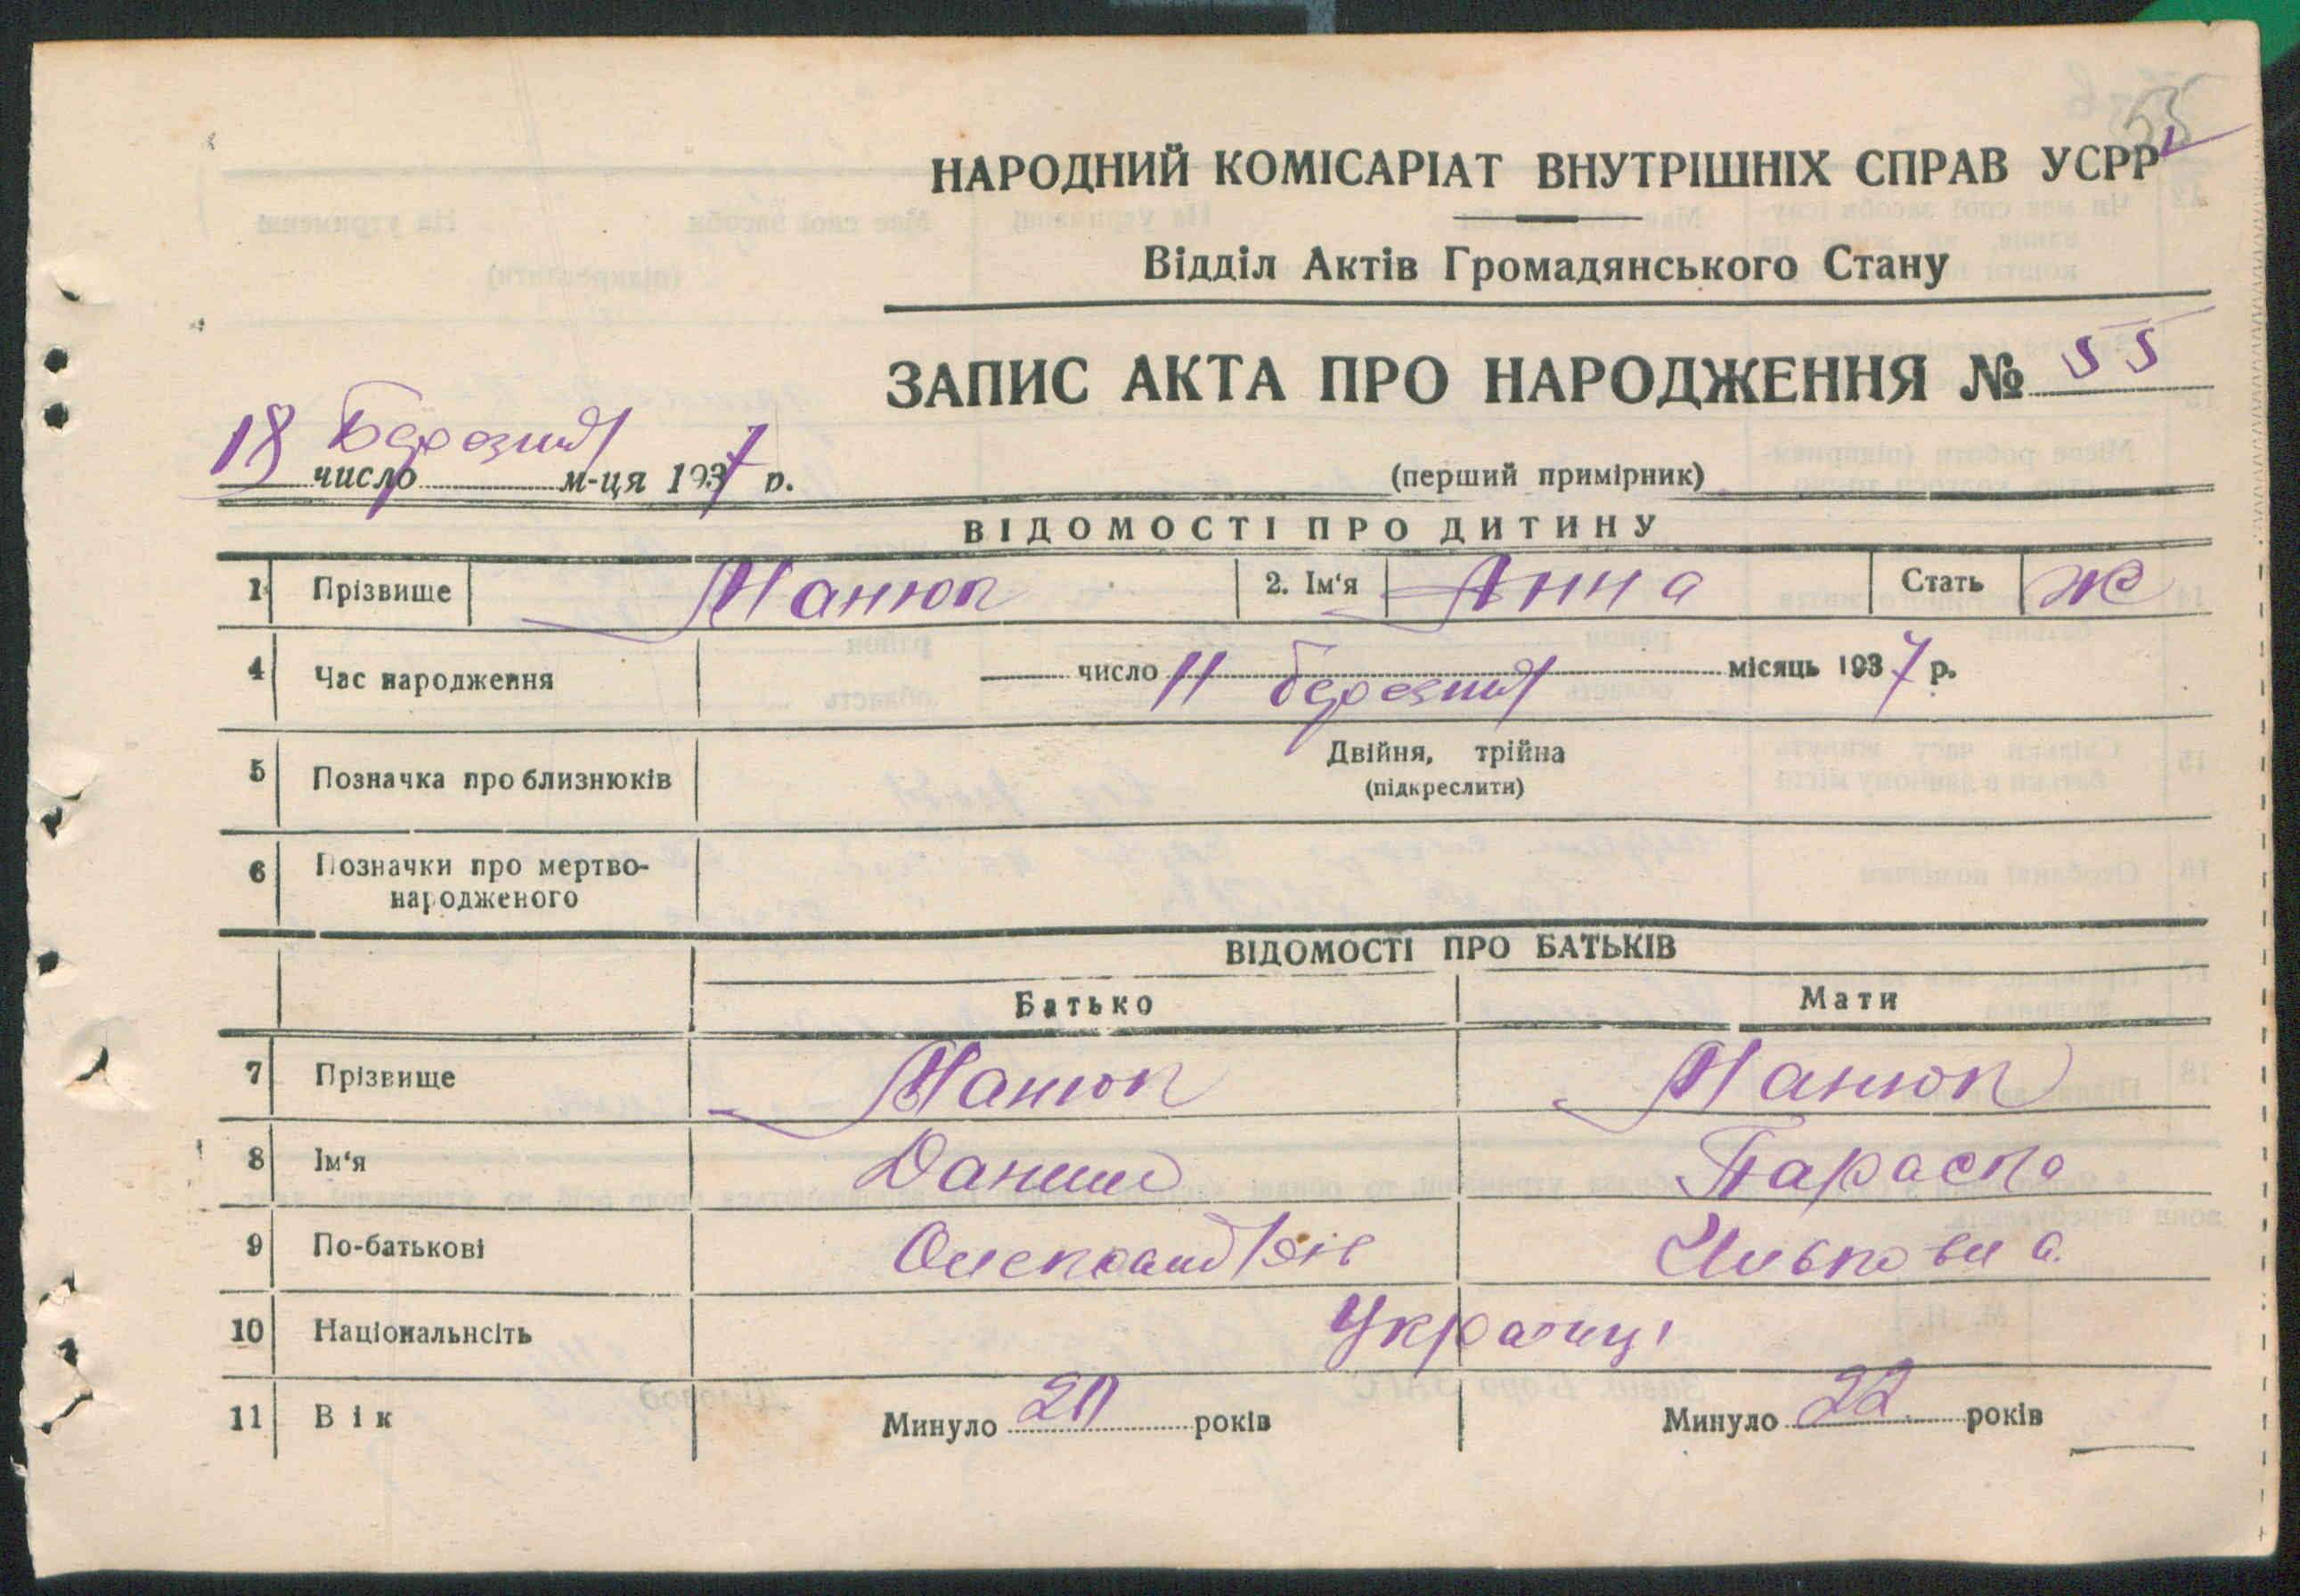 55
НАРОДНИЙ КОМІСАРІАТ ВНУТРІШНІХ СПРАВ УСРР
Відділ Актів Громадянського Стану
ЗАПИС АКТА ПРО НАРОДЖЕННЯ № 55
18 число Березня м-ця 1937 р.
(перший примірник)
ВІДОМОСТІ ПРО ДИТИНУ
1 Прізвище Манюк 2. Ім‘я Анна Стать Ж
4 Час народження число 11 березня місяць 1937 р.
5 Позначка про близнюків Двійня, трійна
(підкреслити)
6 Позначки про мертво-
народженого
ВІДОМОСТІ ПРО БАТЬКІВ
Батько Мати
7 Прізвище Манюк Манюк
8 Ім‘я Данило Параска
9 По-батькові Олександрів Ильковна
10 Націонaльнсіть Українці
11 Вік Минуло років Минуло 22 років